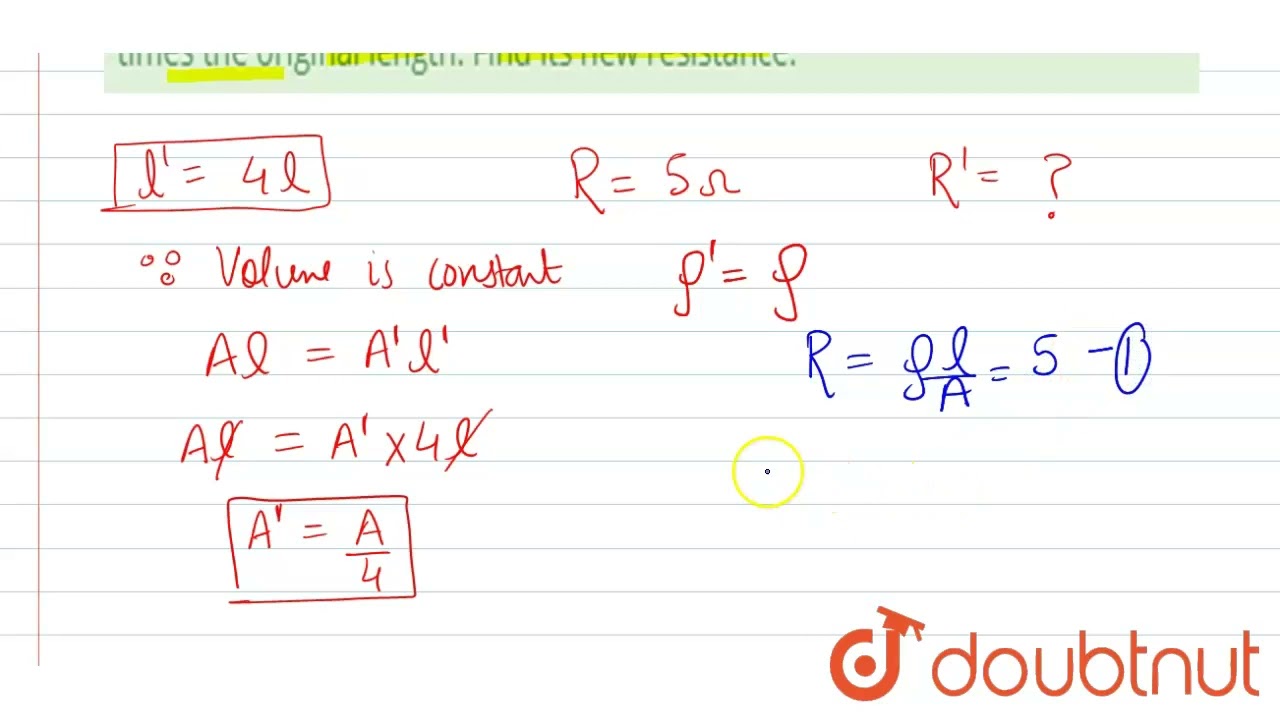 times the original length. Find its new resistance.
l' = 4l R = 5Ω R' = ?
∵ Volume is constant ρ' = ρ
Al = A'l' R = ρl/A = 5 – ①
Al = A' × 4l
A' = A/4
doubtnut